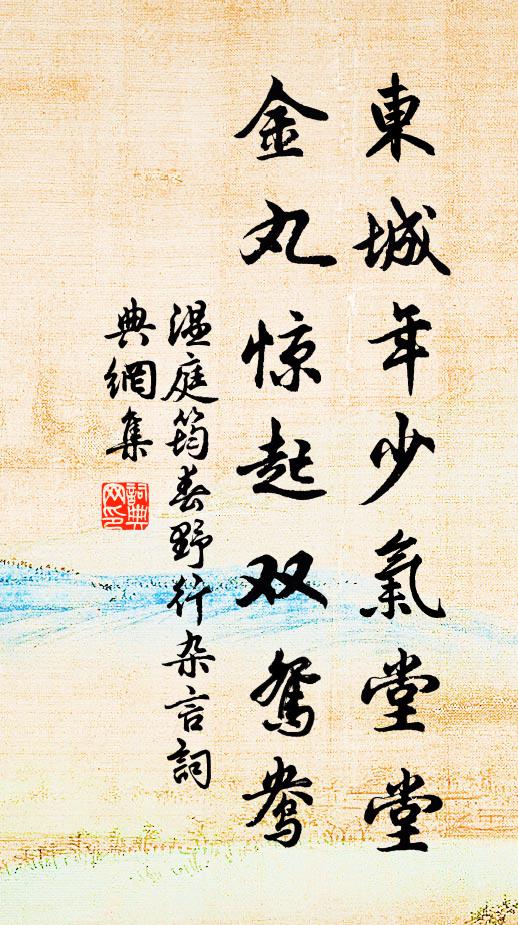 東城年少氣堂堂
金丸惊起双鸳鸯
温庭筠春野行杂言詞
典網集
詞典
网印